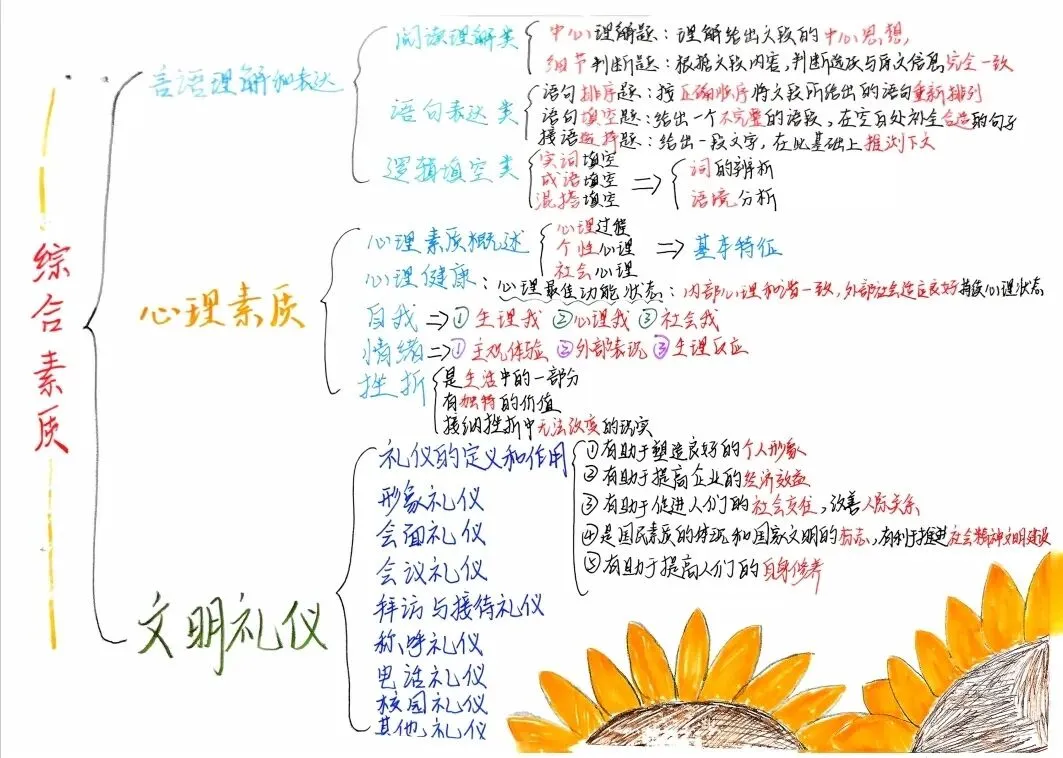 综合素质
言语理解和表达
阅读理解类
中心理解题：理解给出文段的中心思想，
细节判断题：根据文段内容，判断选项与原文信息完全一致
语句表达类
语句排序题：按正确顺序将文段所给出的语句重新排列
语句填空题：给出一个不完整的语段，在空白处补全合适的句子
接语选择题：给出一段文字，在此基础上推测下文
逻辑填空类
实词填空
成语填空
混搭填空
⇒
词的辨析
语境分析
心理素质
心理素质概述
心理过程
个性心理
社会心理
⇒ 基本特征
心理健康：心理最佳功能状态：内部心理和谐一致，外部社会适应良好持续心理状态
自我⇒①生理我 ②心理我 ③社会我
情绪⇒①主观体验 ②外部表现 ③生理反应
挫折
是生活中的一部分
有独特的价值
接纳挫折中无法改变的现实
文明礼仪
礼仪的定义和作用
①有助于塑造良好的个人形象
②有助于提高企业的经济效益
③有助于促进人们的社会交往，改善人际关系
④是国民素质的体现和国家文明的标志，有利于推进社会精神文明建设
⑤有助于提高人们的自身修养
形象礼仪
会面礼仪
会议礼仪
拜访与接待礼仪
称呼礼仪
电话礼仪
校园礼仪
其他礼仪